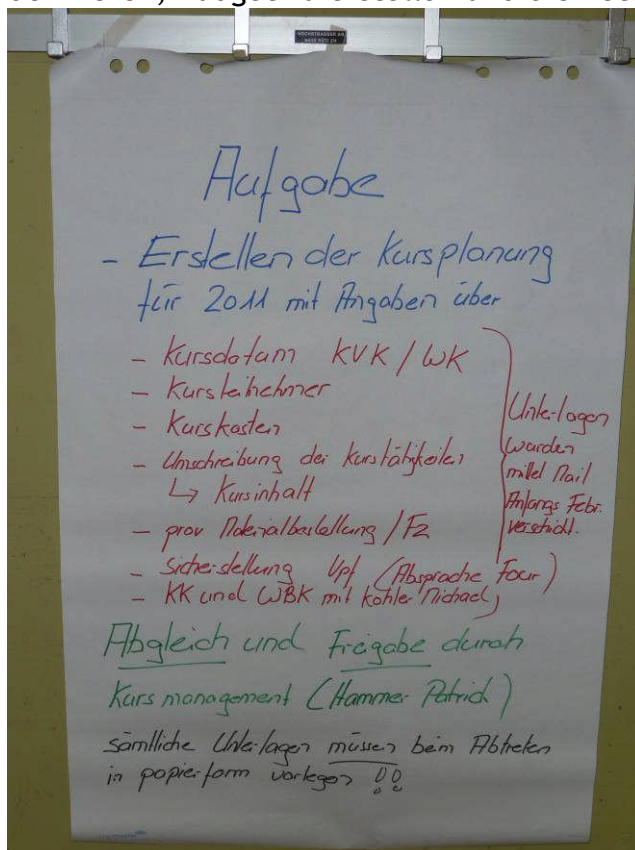 HOCHSTRASSER AG
Aufgabe
- Erstellen der Kursplanung
für 2011 mit Angaben über
- Kursdatum KVK / WK
- Kursteilnehmer
- Kurskosten
- Umschreibung der Kurstätigkeiten
↳ Kursinhalt
- prov Materialbestellung / Fz
- Sicherstellung Vpf (Absprache Four)
- KK und WBK mit Kohler Michael
Unterlagen
wurden
mittel Mail
Anfangs Febr.
verschickt.
Abgleich und Freigabe durch
Kursmanagement (Hammer Patrick)
sämtliche Unterlagen müssen beim Abtreten
in papierform vorlegen !!